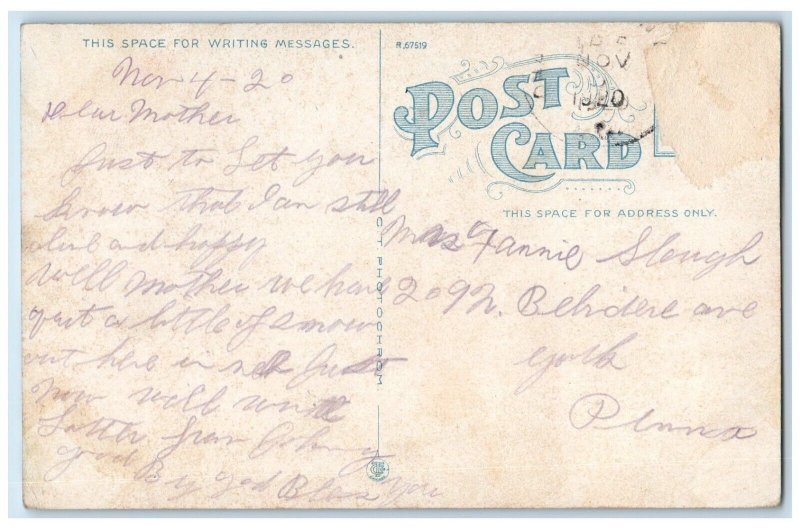 THIS SPACE FOR WRITING MESSAGES.
R.67519
Nov 4-20
Dear Mother
Just to Let you
know that I am still
alive and happy
Well Mother we had
quit a little of snow
out here in Just
Now will write
Latter from Johny
good By god Bless You
C.T. PHOTOCHROM
POST
CARD
NOV
1920
THIS SPACE FOR ADDRESS ONLY.
Mrs Fannie Slough
209 N. Belvidere ave
york
Penna